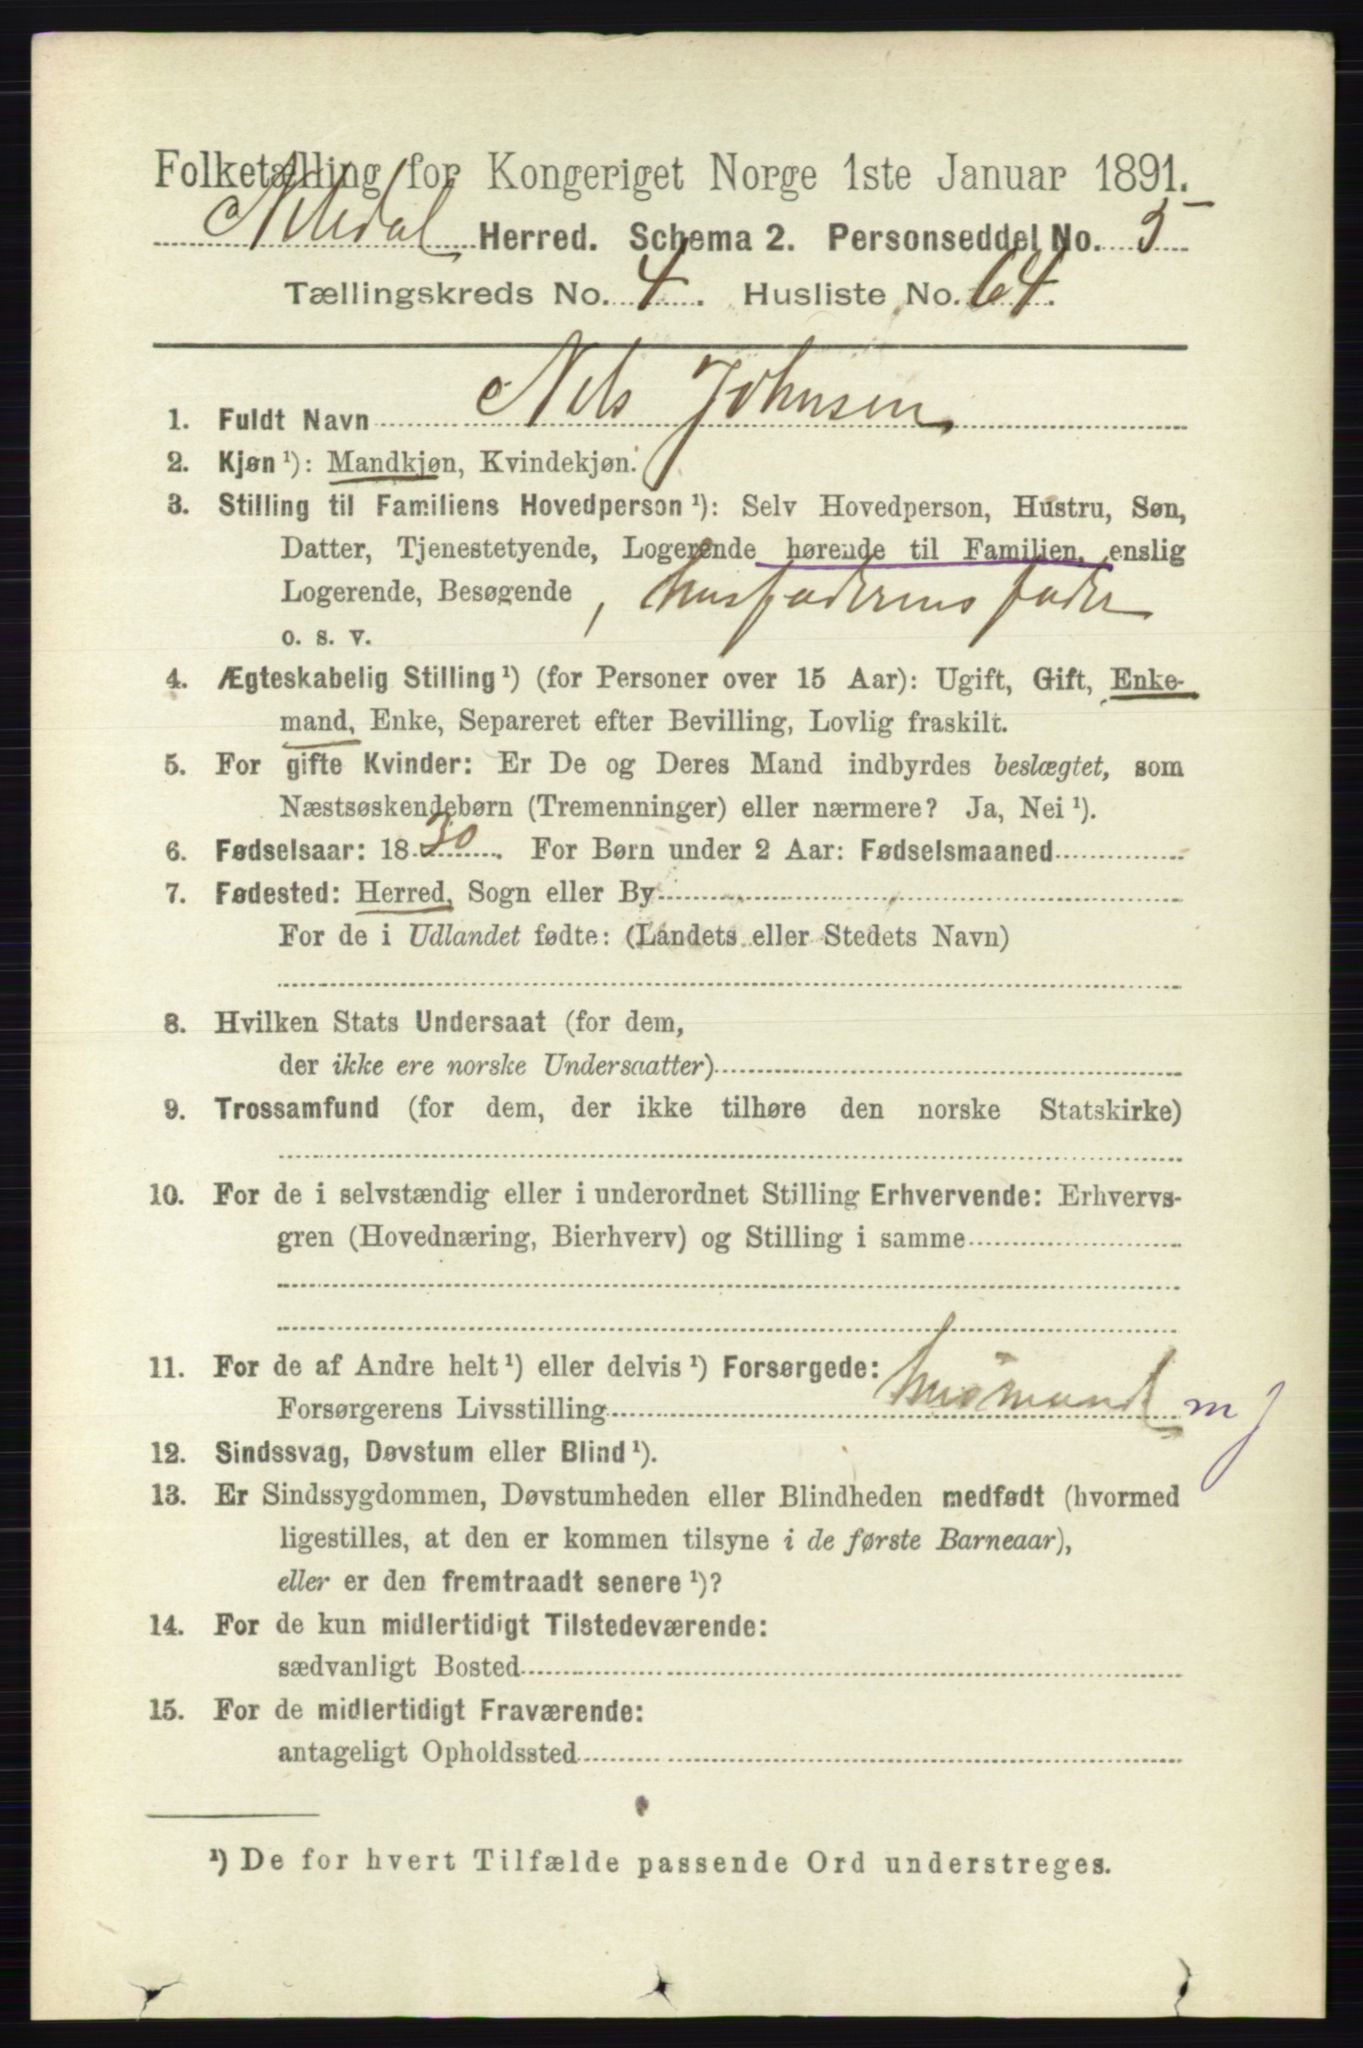 Folketælling for Kongeriget Norge 1ste Januar 1891.
Nitedal Herred. Schema 2. Personseddel No. 5
Tællingskreds No. 4. Husliste No. 64.
1. Fuldt Navn Nels Johnsen
2. Kjøn ¹): Mandkjøn, Kvindekjøn.
3. Stilling til Familiens Hovedperson ¹): Selv Hovedperson, Hustru, Søn,
Datter, Tjenestetyende, Logerende hørende til Familien, enslig
Logerende, Besøgende , husfaderens fader
o. s. v.
4. Ægteskabelig Stilling ¹) (for Personer over 15 Aar): Ugift, Gift, Enke-
mand, Enke, Separeret efter Bevilling, Lovlig fraskilt.
5. For gifte Kvinder: Er De og Deres Mand indbyrdes beslægtet, som
Næstsøskendebørn (Tremenninger) eller nærmere? Ja, Nei ¹).
6. Fødselsaar: 1830. For Børn under 2 Aar: Fødselsmaaned
7. Fødested: Herred, Sogn eller By
For de i Udlandet fødte: (Landets eller Stedets Navn)
8. Hvilken Stats Undersaat (for dem,
der ikke ere norske Undersaatter)
9. Trossamfund (for dem, der ikke tilhøre den norske Statskirke)
10. For de i selvstændig eller i underordnet Stilling Erhvervende: Erhvervs-
gren (Hovednæring, Bierhverv) og Stilling i samme
11. For de af Andre helt ¹) eller delvis ¹) Forsørgede:
Forsørgerens Livsstilling Husmand m J
12. Sindssvag, Døvstum eller Blind ¹).
13. Er Sindssygdommen, Døvstumheden eller Blindheden medfødt (hvormed
ligestilles, at den er kommen tilsyne i de første Barneaar),
eller er den fremtraadt senere ¹)?
14. For de kun midlertidigt Tilstedeværende:
sædvanligt Bosted
15. For de midlertidigt Fraværende:
antageligt Opholdssted
¹) De for hvert Tilfælde passende Ord understreges.